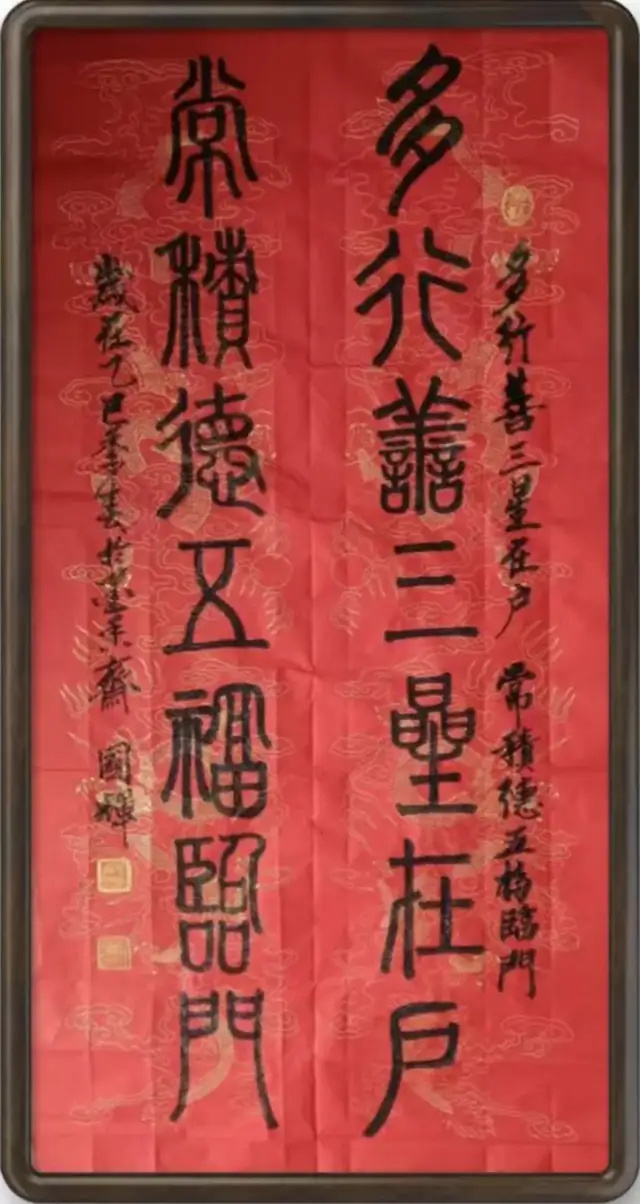 多行善三星在户 常積德五福臨門
多行善三星在户
常積德五福臨門
歲在乙巳 於 齋 國輝